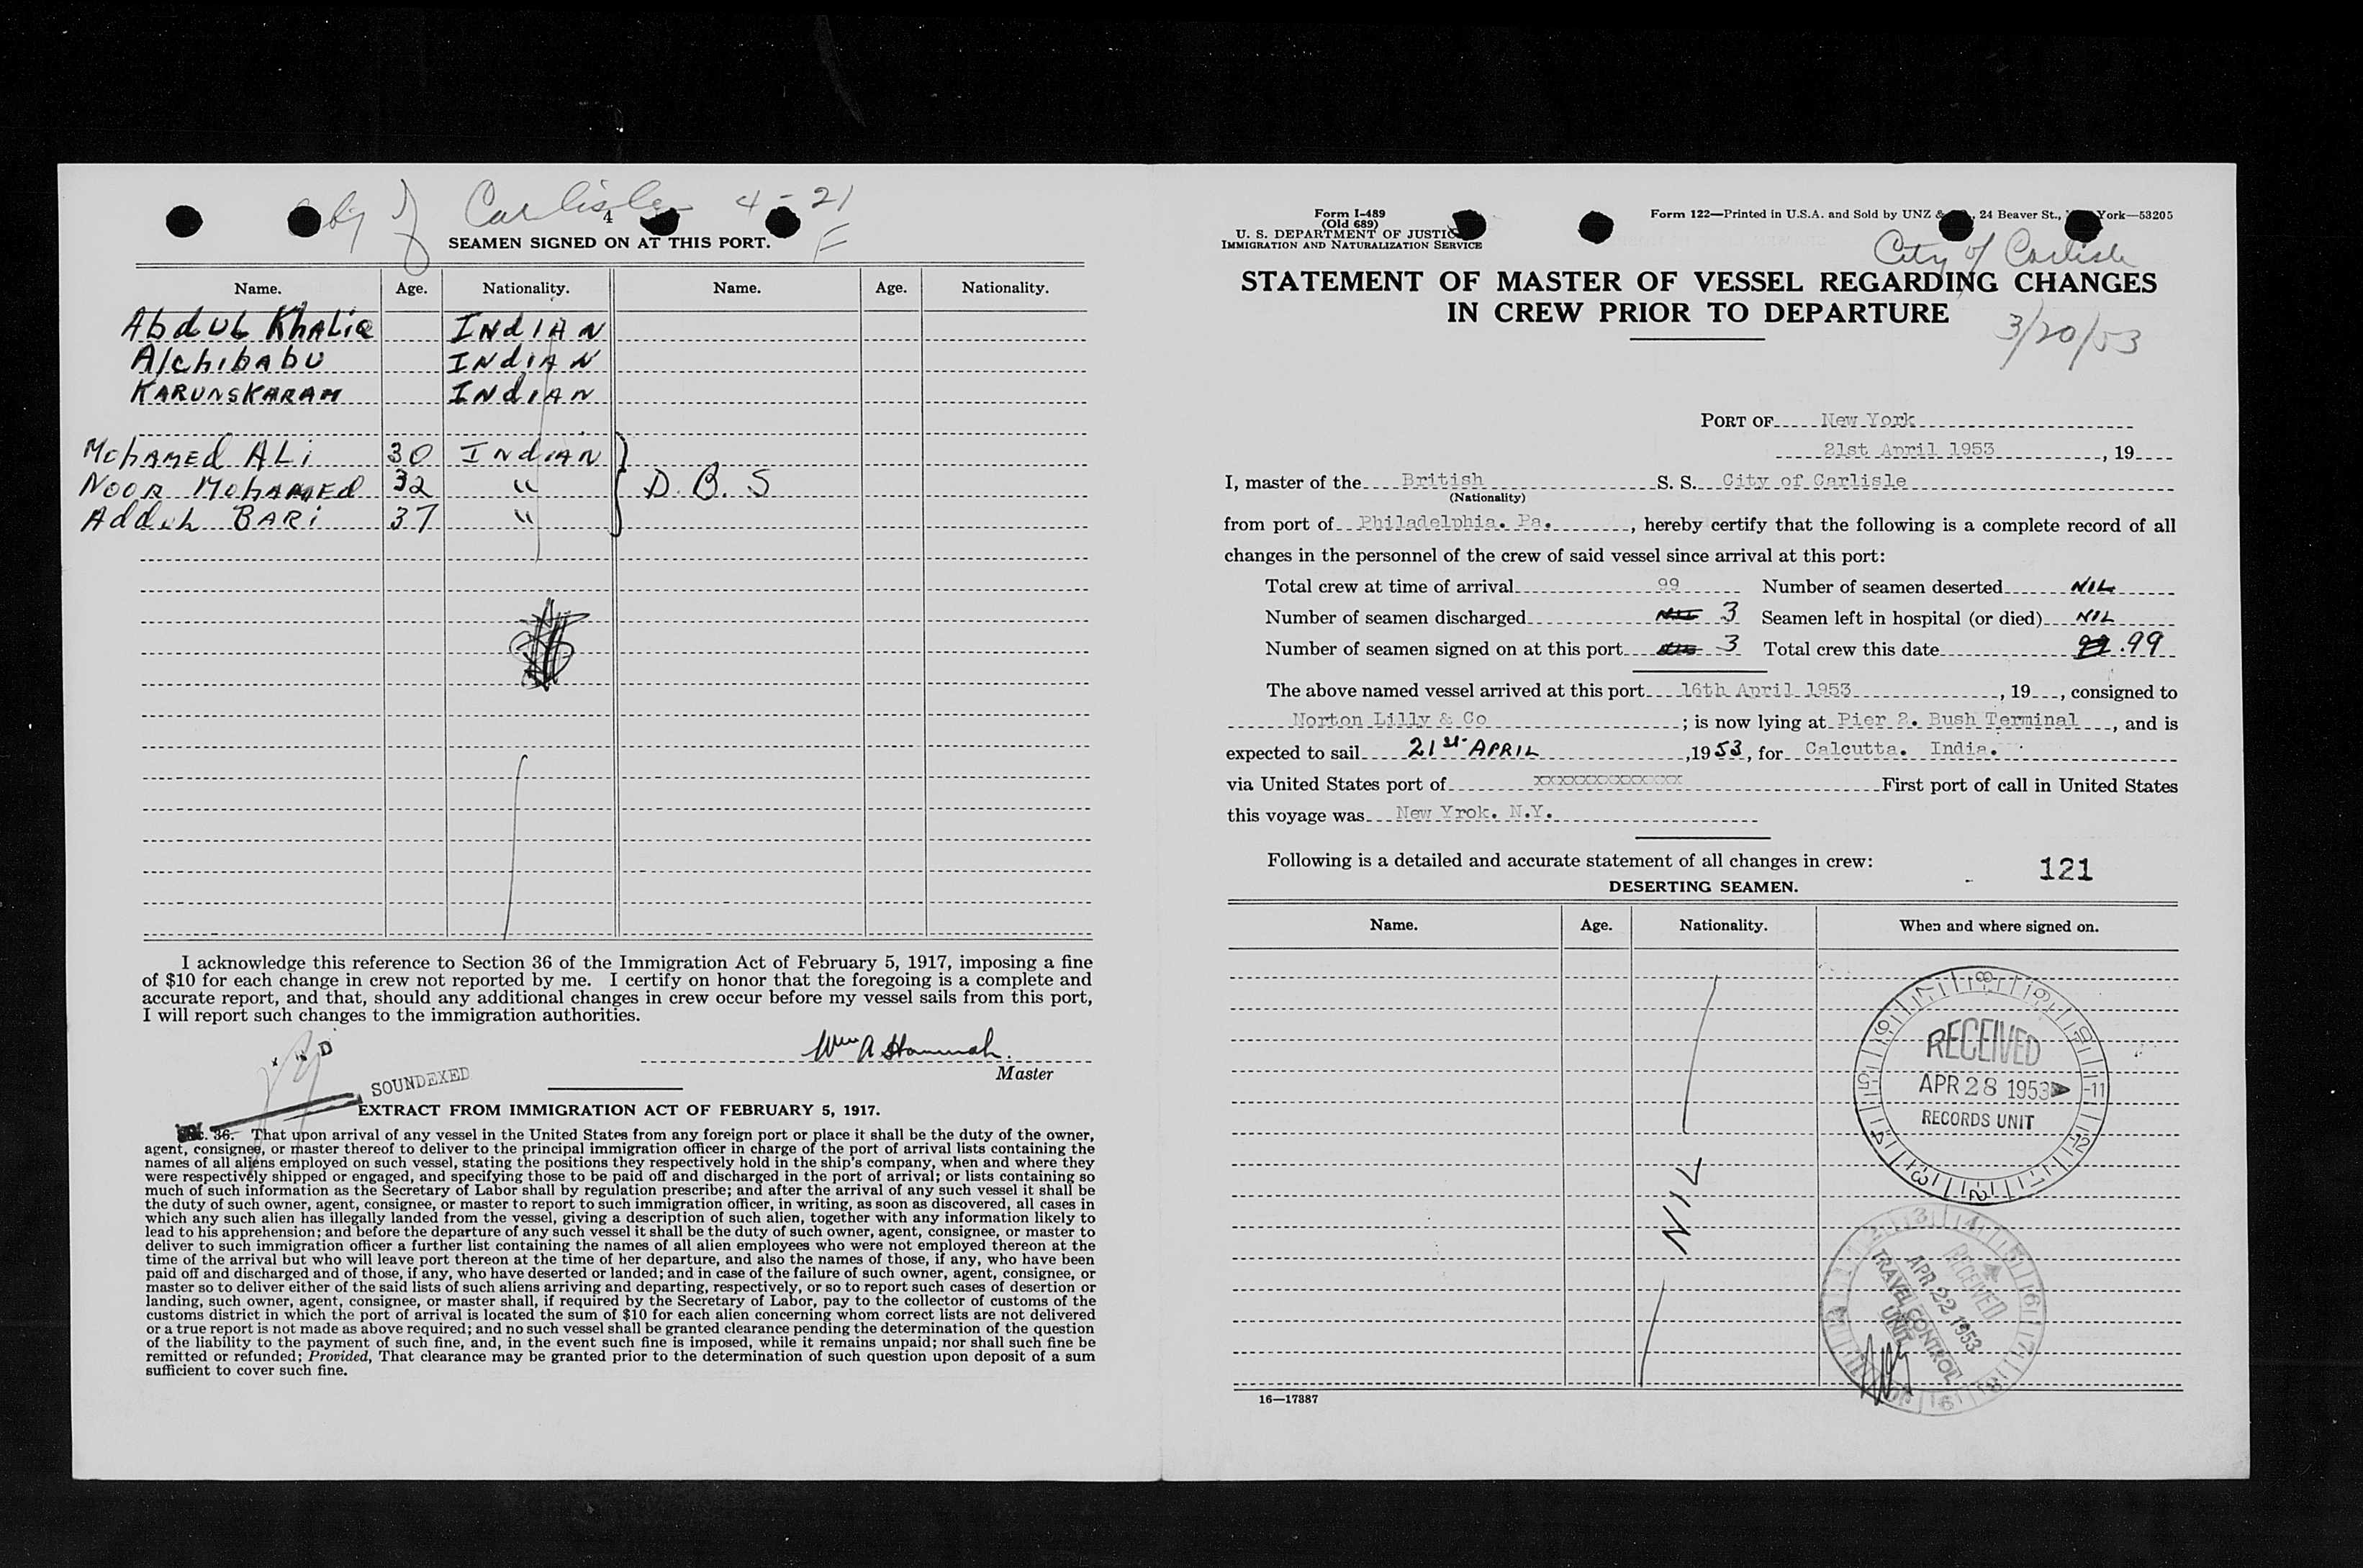 City of Carlisle 4-21
F
4
SEAMEN SIGNED ON AT THIS PORT.
Name. Age. Nationality. Name. Age. Nationality.
Abdul Khaliq Indian
Alchibabu Indian
Karunskaram Indian
Mohamed Ali 30 Indian
Noor Mohamed 32 " D.B.S
Abdul Bari 37 "
I acknowledge this reference to Section 36 of the Immigration Act of February 5, 1917, imposing a fine
of $10 for each change in crew not reported by me. I certify on honor that the foregoing is a complete and
accurate report, and that, should any additional changes in crew occur before my vessel sails from this port,
I will report such changes to the immigration authorities.
Wm A Hannah.
Master
SOUNDEXED
EXTRACT FROM IMMIGRATION ACT OF FEBRUARY 5, 1917.
Sec. 36. That upon arrival of any vessel in the United States from any foreign port or place it shall be the duty of the owner,
agent, consignee, or master thereof to deliver to the principal immigration officer in charge of the port of arrival lists containing the
names of all aliens employed on such vessel, stating the positions they respectively hold in the ship's company, when and where they
were respectively shipped or engaged, and specifying those to be paid off and discharged in the port of arrival; or lists containing so
much of such information as the Secretary of Labor shall by regulation prescribe; and after the arrival of any such vessel it shall be
the duty of such owner, agent, consignee, or master to report to such immigration officer, in writing, as soon as discovered, all cases in
which any such alien has illegally landed from the vessel, giving a description of such alien, together with any information likely to
lead to his apprehension; and before the departure of any such vessel it shall be the duty of such owner, agent, consignee, or master to
deliver to such immigration officer a further list containing the names of all alien employees who were not employed thereon at the
time of the arrival but who will leave port thereon at the time of her departure, and also the names of those, if any, who have been
paid off and discharged and of those, if any, who have deserted or landed; and in case of the failure of such owner, agent, consignee, or
master so to deliver either of the said lists of such aliens arriving and departing, respectively, or so to report such cases of desertion or
landing, such owner, agent, consignee, or master shall, if required by the Secretary of Labor, pay to the collector of customs of the
customs district in which the port of arrival is located the sum of $10 for each alien concerning whom correct lists are not delivered
or a true report is not made as above required; and no such vessel shall be granted clearance pending the determination of the question
of the liability to the payment of such fine, and, in the event such fine is imposed, while it remains unpaid; nor shall such fine be
remitted or refunded; Provided, That clearance may be granted prior to the determination of such question upon deposit of a sum
sufficient to cover such fine.
Form I-489
(Old 689)
U. S. DEPARTMENT OF JUSTIC
IMMIGRATION AND NATURALIZATION SERVICE
Form 122—Printed in U.S.A. and Sold by UNZ & , 24 Beaver St., York—53205
City of Carlisle
STATEMENT OF MASTER OF VESSEL REGARDING CHANGES
IN CREW PRIOR TO DEPARTURE
3/20/53
PORT OF New York
21st April 1953, 19
I, master of the British S. S. City of Carlisle
(Nationality)
from port of Philadelphia. Pa., hereby certify that the following is a complete record of all
changes in the personnel of the crew of said vessel since arrival at this port:
Total crew at time of arrival 99 Number of seamen deserted NIL
Number of seamen discharged NIL 3 Seamen left in hospital (or died) NIL
Number of seamen signed on at this port 3 Total crew this date 99.99
The above named vessel arrived at this port 16th April 1953, 19, consigned to
Norton Lilly & Co; is now lying at Pier 2. Bush Terminal, and is
expected to sail 21st April, 1953, for Calcutta. India.
via United States port of xxxxxxxxxxxxxx First port of call in United States
this voyage was New Yrok. N.Y.
Following is a detailed and accurate statement of all changes in crew:
121
DESERTING SEAMEN.
Name. Age. Nationality. When and where signed on.
NIL
RECEIVED
APR 28 1953
RECORDS UNIT
RECEIVED
APR 22 1953
TRAVEL CONTROL
UNIT
16—17387